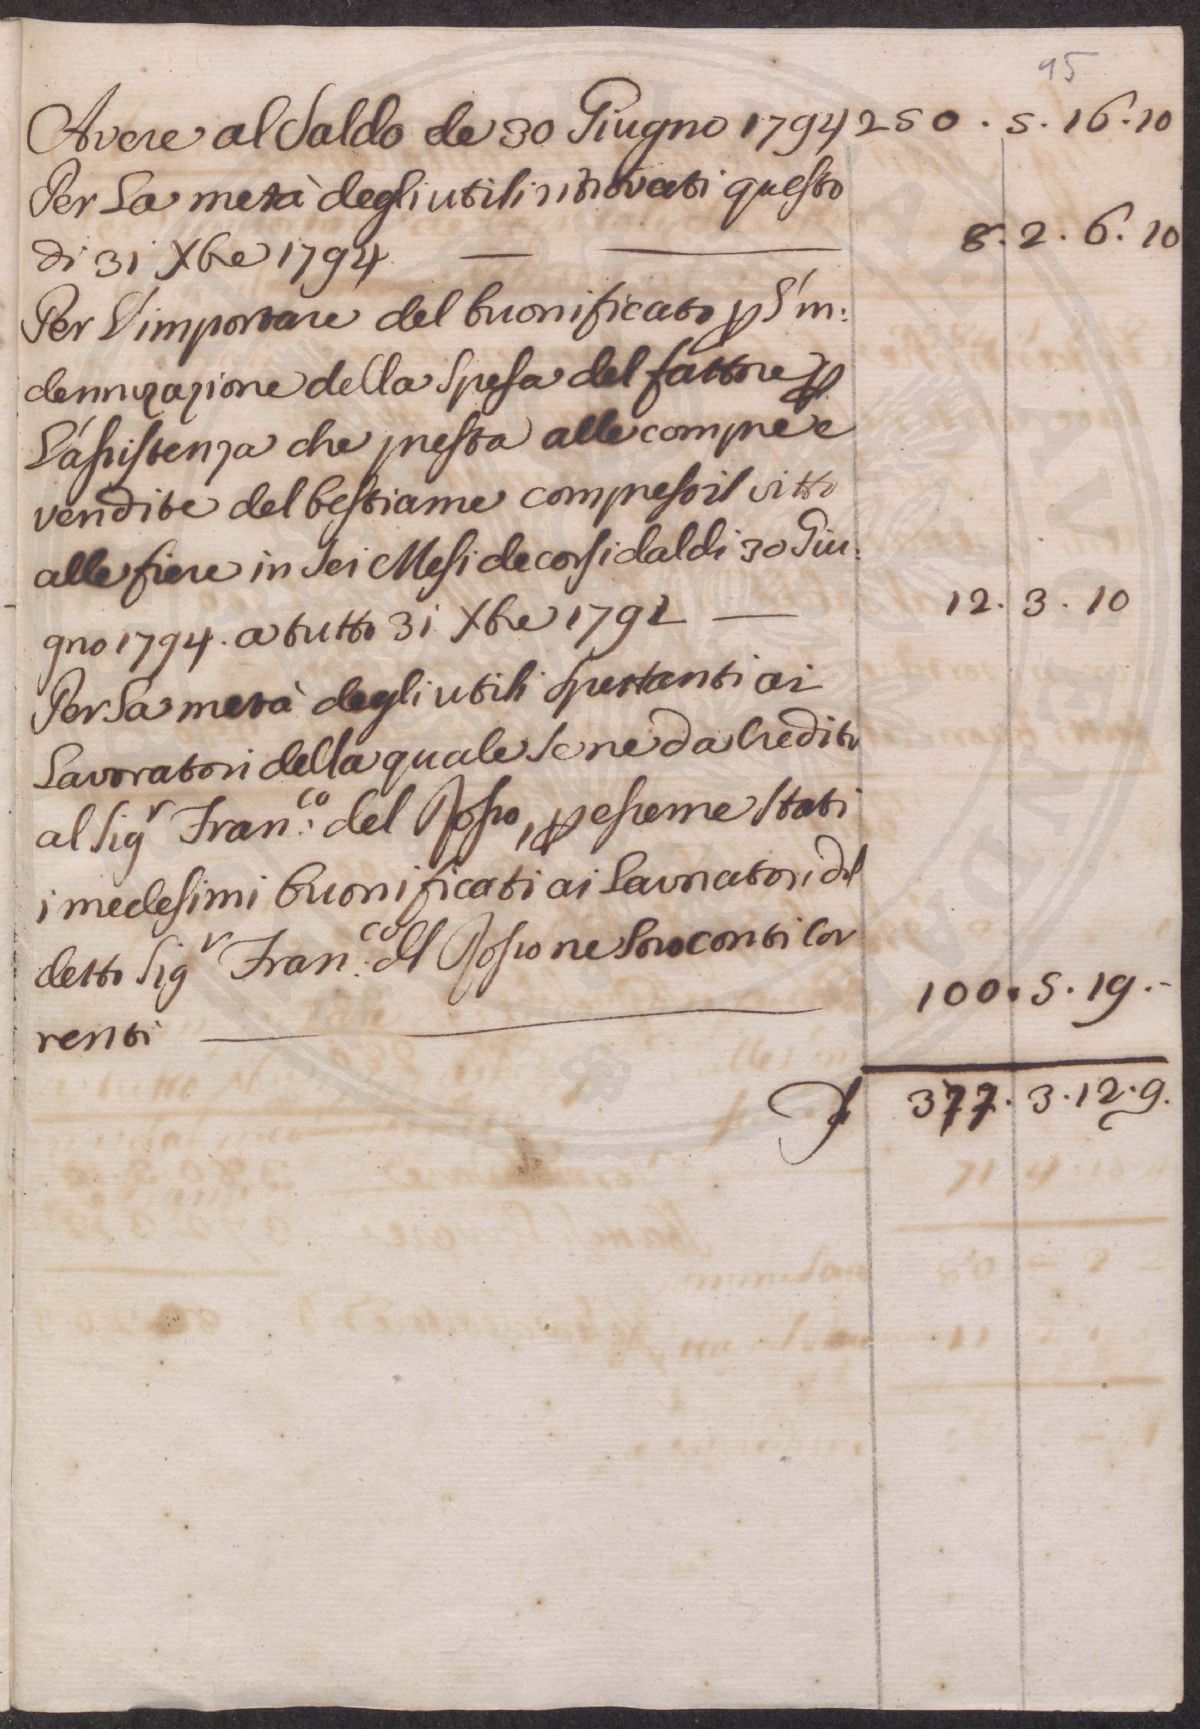 95
Avere al Saldo de 30 Giugno 1794 250 . 5 . 16 . 10
Per La metà degli utili ritrovati questo
di 31 Xbre 1794 — — 8 . 2 . 6 . 10
Per L'importare del buonificato p L'in:
dennizazione della Spesa del fattore p
L'assistenza che presta alle compre e
vendite del bestiame compreso il vitto
alle fiere in Sei Mesi decorsi dal di 30 Giu:
gno 1794. a tutto 31 Xbre 1794 — 12 . 3 . 10
Per La metà degli utili spettanti ai
Lavoratori della quale Se ne da Credito
al Sigr Fran.co del Rosso, p esserne Stati
i medesimi buonificati ai Lavoratori del
detto Sigr Fran.co del Rosso ne Loro conti Cor
renti — 100 . 5 . 19 . -
377 . 3 . 12 . 9 .